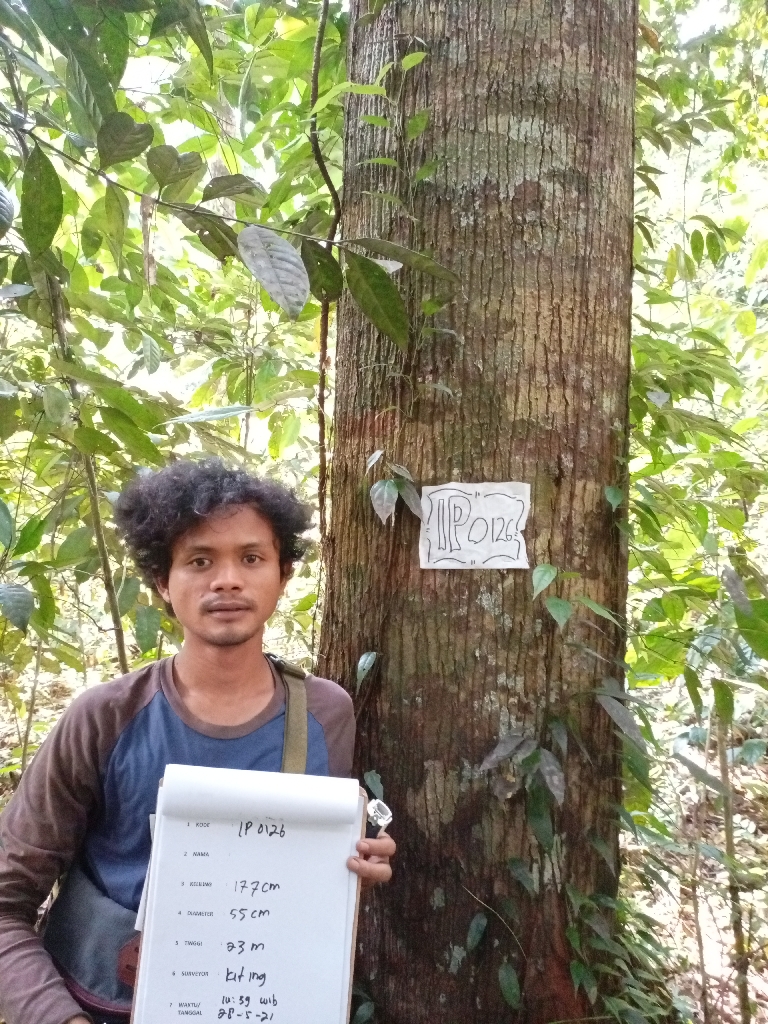 IP 0126
1 KODE : IP 0126
2 NAMA :
3 KELILING : 177cm
4 DIAMETER : 55 cm
5 TINGGI : 23 m
6 SURVEYOR : Kiting
7 WAKTU/ 10:59 wib
TANGGAL 28-5-21